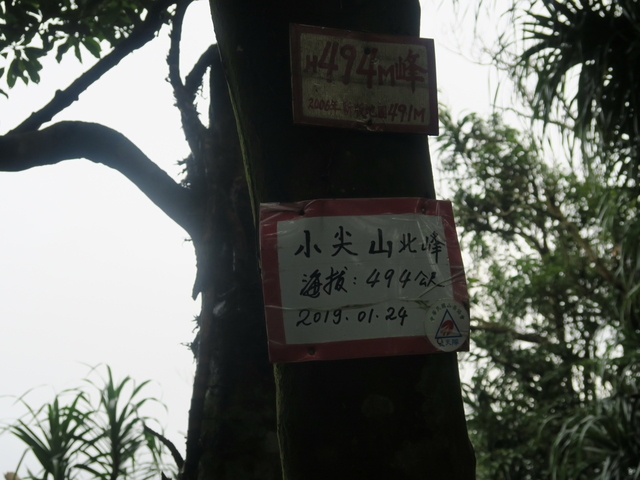 494M峰
2006年 491M
小尖山北峰
海拔:494公尺
2019.01.24